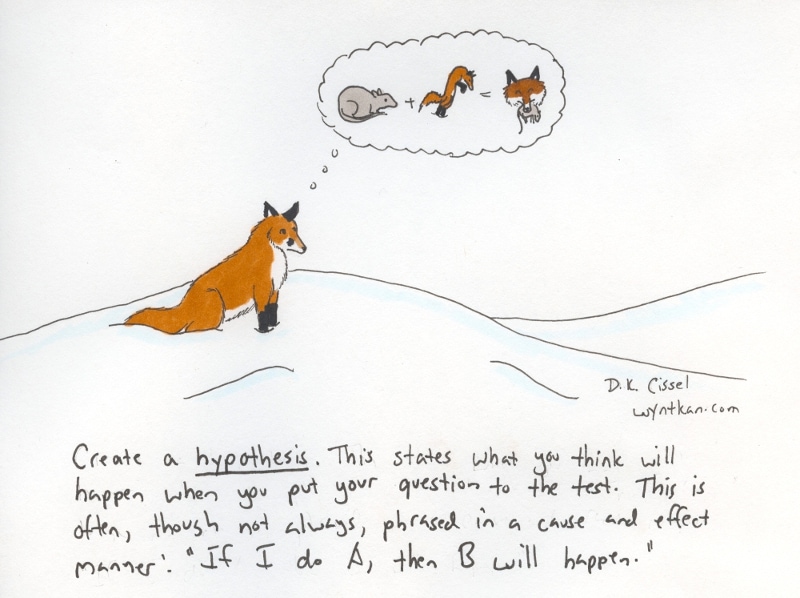 + =
D.K. Cissel
wyntkan.com
Create a hypothesis. This states what you think will
happen when you put your question to the test. This is
often, though not always, phrased in a cause and effect
manner: "If I do A, then B will happen."